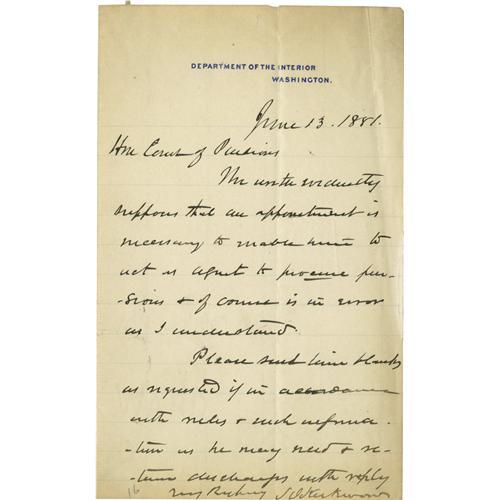 DEPARTMENT OF THE INTERIOR
WASHINGTON.
June 13. 1881.
Hon Comr of Pensions
The writer evidently
suppose that an appointment is
necessary to enable him to
act as agent to procure pen-
-sions & of course is in error
as I understand.
Please send him blanks
as requested if in accordance
with rules & such informa-
-tion as he may need & re-
-turn discharges with reply
very Resptuy S J Kirkwood
16